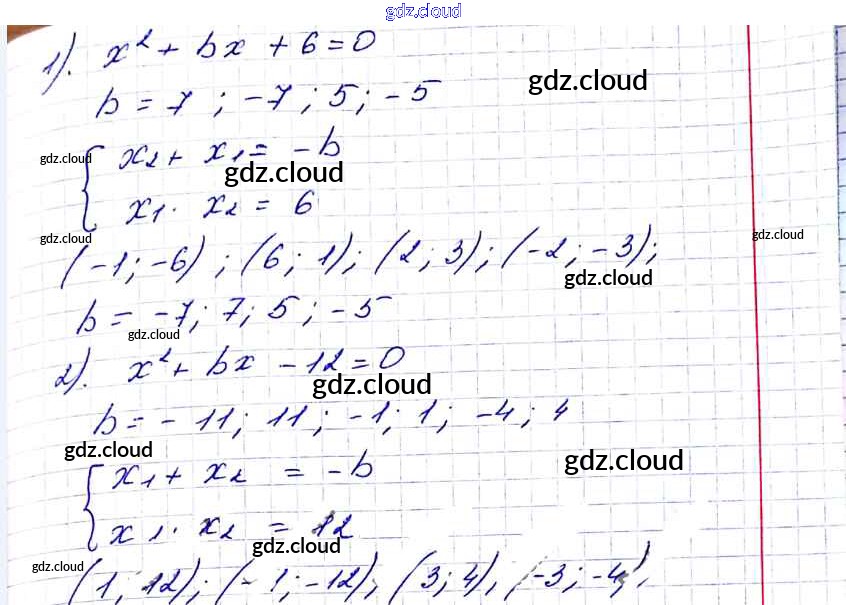 gdz.cloud
1). x² + bx + 6 = 0
gdz.cloud
b = 7 ; -7 ; 5 ; -5
gdz.cloud
{ x₂ + x₁ = -b
gdz.cloud
x₁ · x₂ = 6
gdz.cloud
gdz.cloud
(-1; -6) ; (6 ; 1) ; (2 ; 3) ; (-2 ; -3) ;
gdz.cloud
b = -7 ; 7 ; 5 ; -5
gdz.cloud
2). x² + bx - 12 = 0
gdz.cloud
b = -11 ; 11 ; -1 ; 1 ; -4 ; 4
gdz.cloud
gdz.cloud
{ x₁ + x₂ = -b
x₁ · x₂ = 12
gdz.cloud
gdz.cloud
(1 ; 12) ; (-1 ; -12) , (3 ; 4) , (-3 ; -4) ,